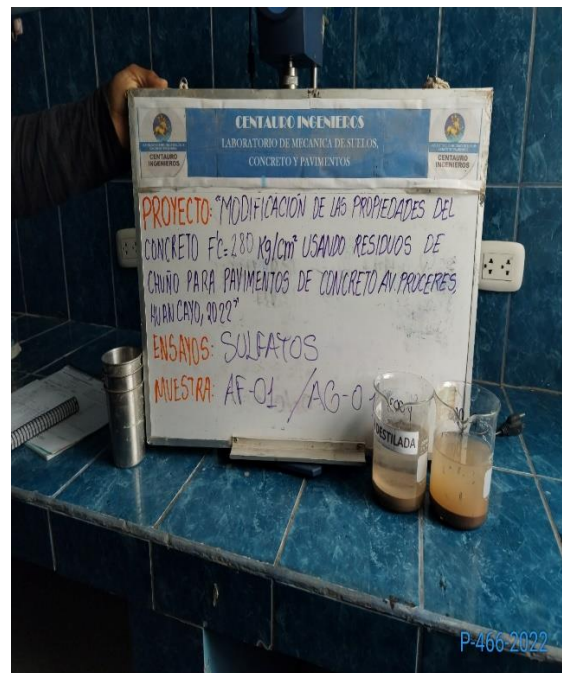 CENTAURO INGENIEROS
LABORATORIO DE MECANICA DE SUELOS,
CONCRETO Y PAVIMENTOS
CENTAURO
INGENIEROS
CENTAURO
INGENIEROS
PROYECTO: "MODIFICACIÓN DE LAS PROPIEDADES DEL
CONCRETO F'C=280 Kg/cm² USANDO RESIDUOS DE
CHUÑO PARA PAVIMENTOS DE CONCRETO AV. PROCERES,
HUANCAYO, 2022"
ENSAYOS: SULFATOS
MUESTRA: AF-01 / AG-0
DESTILADA
P-466-2022